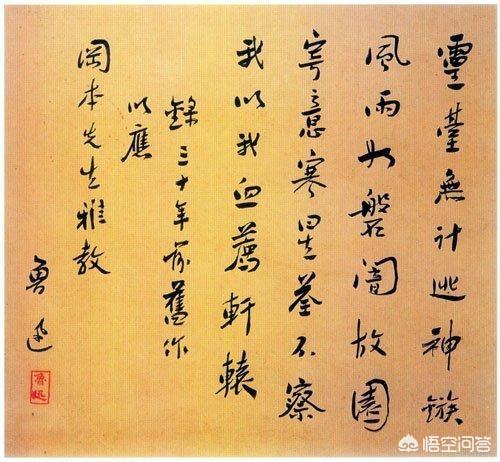 靈臺無計逃神鏃
風雨如磐闇故園
寄意寒星荃不察
我以我血薦軒轅
錄三十年前舊作
以應
岡本先生雅教
魯迅
魯迅
悟空问答